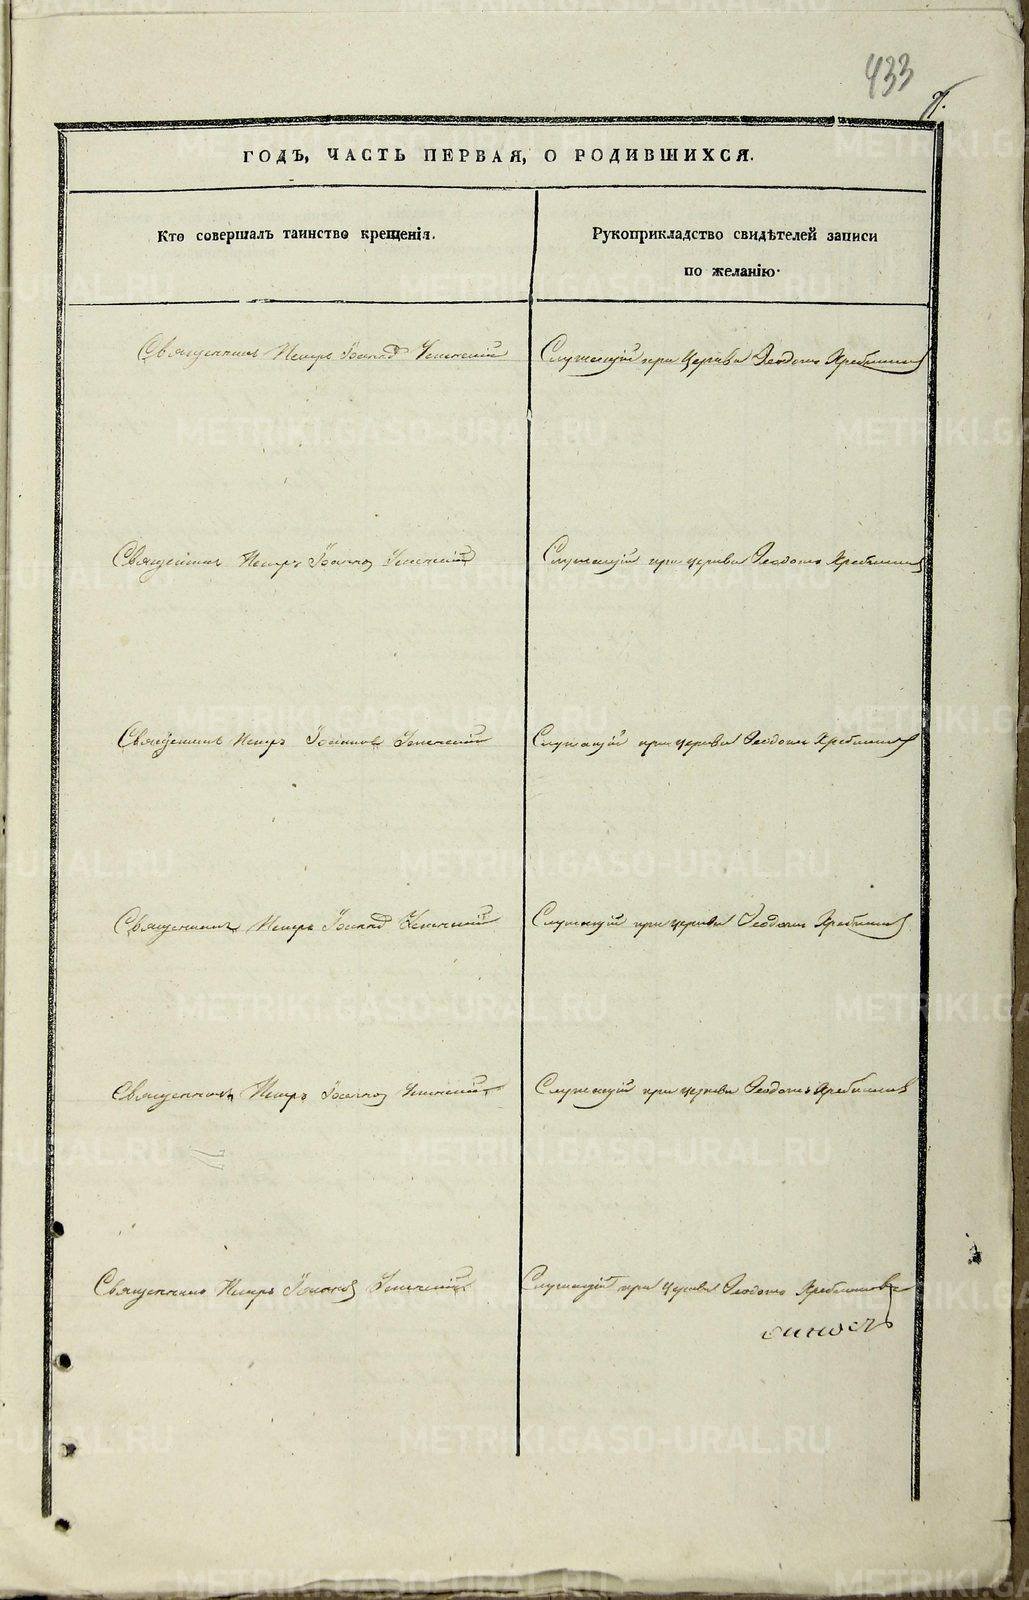 433
ГОДЪ, ЧАСТЬ ПЕРВАЯ, О РОДИВШИХСЯ.
Кто совершалъ таинство крещенія.
Рукоприкладство свидѣтелей записи
по желанію.
Священникъ Петръ Іоаннов Успенскій
Служащій при Церкви Ѳеодотъ
Священникъ Петръ Іоаннов Успенскій
Служащій при церкви Ѳеодотъ
Священникъ Петръ Іоаннов Успенскій
Служащій при церкви Ѳеодотъ
Священникъ Петръ Іоаннов Успенскій
Служащій при церкви Ѳеодотъ
Священникъ Петръ Іоаннов Успенскій
Служащій при церкви Ѳеодотъ
Священникъ Петръ Іоаннов Успенскій
Служащій при Церкви Ѳеодотъ
METRIKI.GASO-URAL.RU